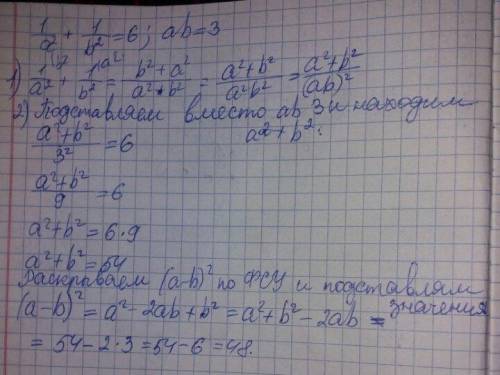 1/a² + 1/b² = 6; ab = 3
1) 1/a² + 1/b² = (b² + a²)/(a² · b²) = (a² + b²)/(a²b²) = (a² + b²)/(ab)²
2) Подставляем вместо ab 3 и находим
a² + b²:
(a² + b²)/3² = 6
(a² + b²)/9 = 6
a² + b² = 6 · 9
a² + b² = 54
Раскрываем (a-b)² по ФСУ и подставлям
значения
(a-b)² = a² - 2ab + b² = a² + b² - 2ab =
= 54 - 2 · 3 = 54 - 6 = 48.